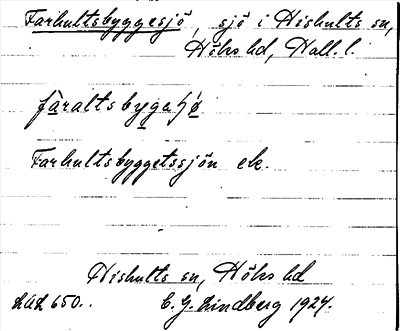 Farhultsbyggesjö, sjö i Hishults sn,
Höks hd, Hall. l.
fàraltsbygaʃø
Farhultsbyggetssjön ek.
Hishults sn, Höks hd
LUH 650. C. G. Lindberg 1927.